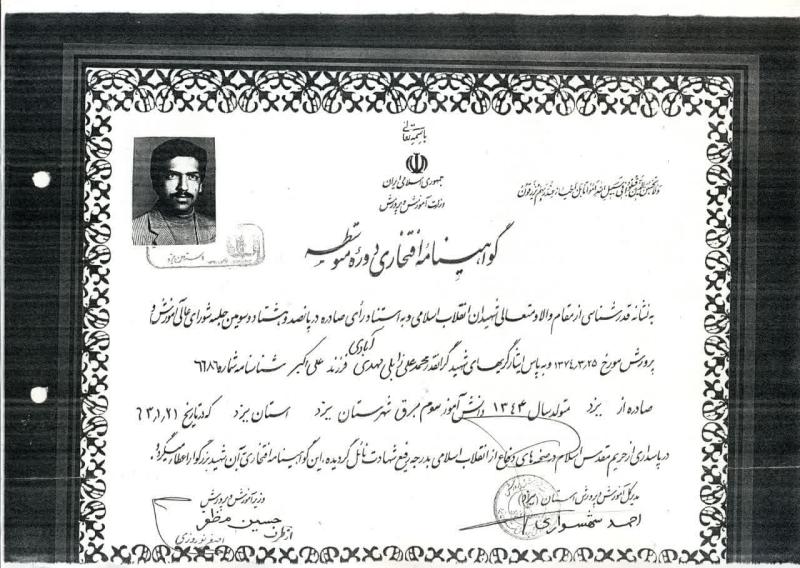 باسمه تعالی
جمهوری اسلامی ایران
وزارت آموزش و پرورش
گواهینامه افتخاری دوره متوسطه
به نشانه قدرشناسی از مقام والا و متعالی شهیدان انقلاب اسلامی و به استناد رأی صادره در پانصد و هشتاد و سومین جلسه شورای عالی آموزش و
پرورش مورخ ۱۳۷۴,۳,۲۵ و به پاس ایثارگریهای شهید گرانقدر محمد علی زابلی مهدی آبادی فرزند علی اکبر شناسنامه شماره ۶۶۱۸۶
صادره از یزد متولد سال ۱۳۴۴ دانش آموز سوم برق شهرستان یزد استان یزد که در تاریخ ۶۳,۱,۲۱
در پاسداری از حریم مقدس اسلام در صحنه های دفاع از انقلاب اسلامی بدرجه رفیع شهادت نائل گردیده، این گواهینامه افتخاری آن شهید بزرگوار اعطاء میگردد.
مدیرکل آموزش و پرورش استان (یزد)
احمد شهسواری
وزیر آموزش و پرورش
حسین مظفر
از طرف
اصغر نوروزی